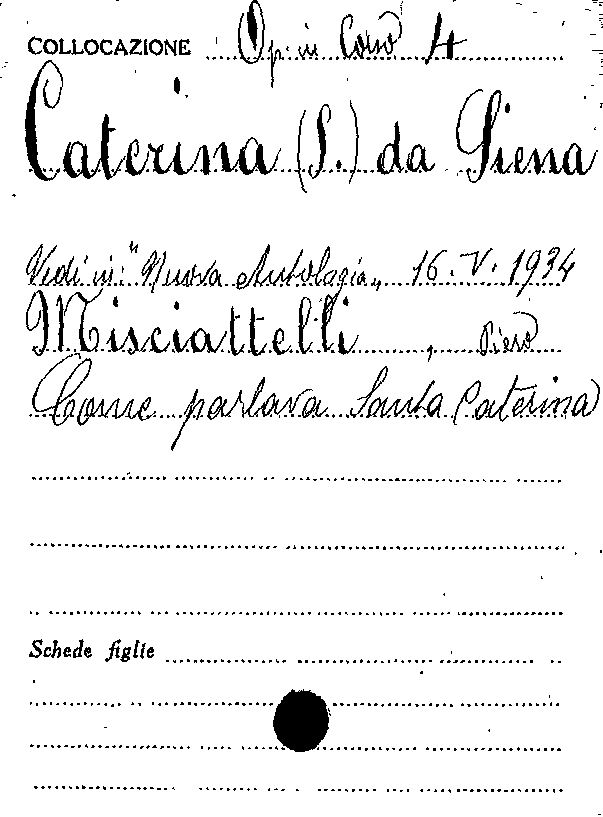 COLLOCAZIONE Op. in Corso 4
Caterina (S.) da Siena
Vedi in: "Nuova Antologia„ 16.V.1934
Misciattelli, Piero
Come parlava Santa Caterina
Schede figlie